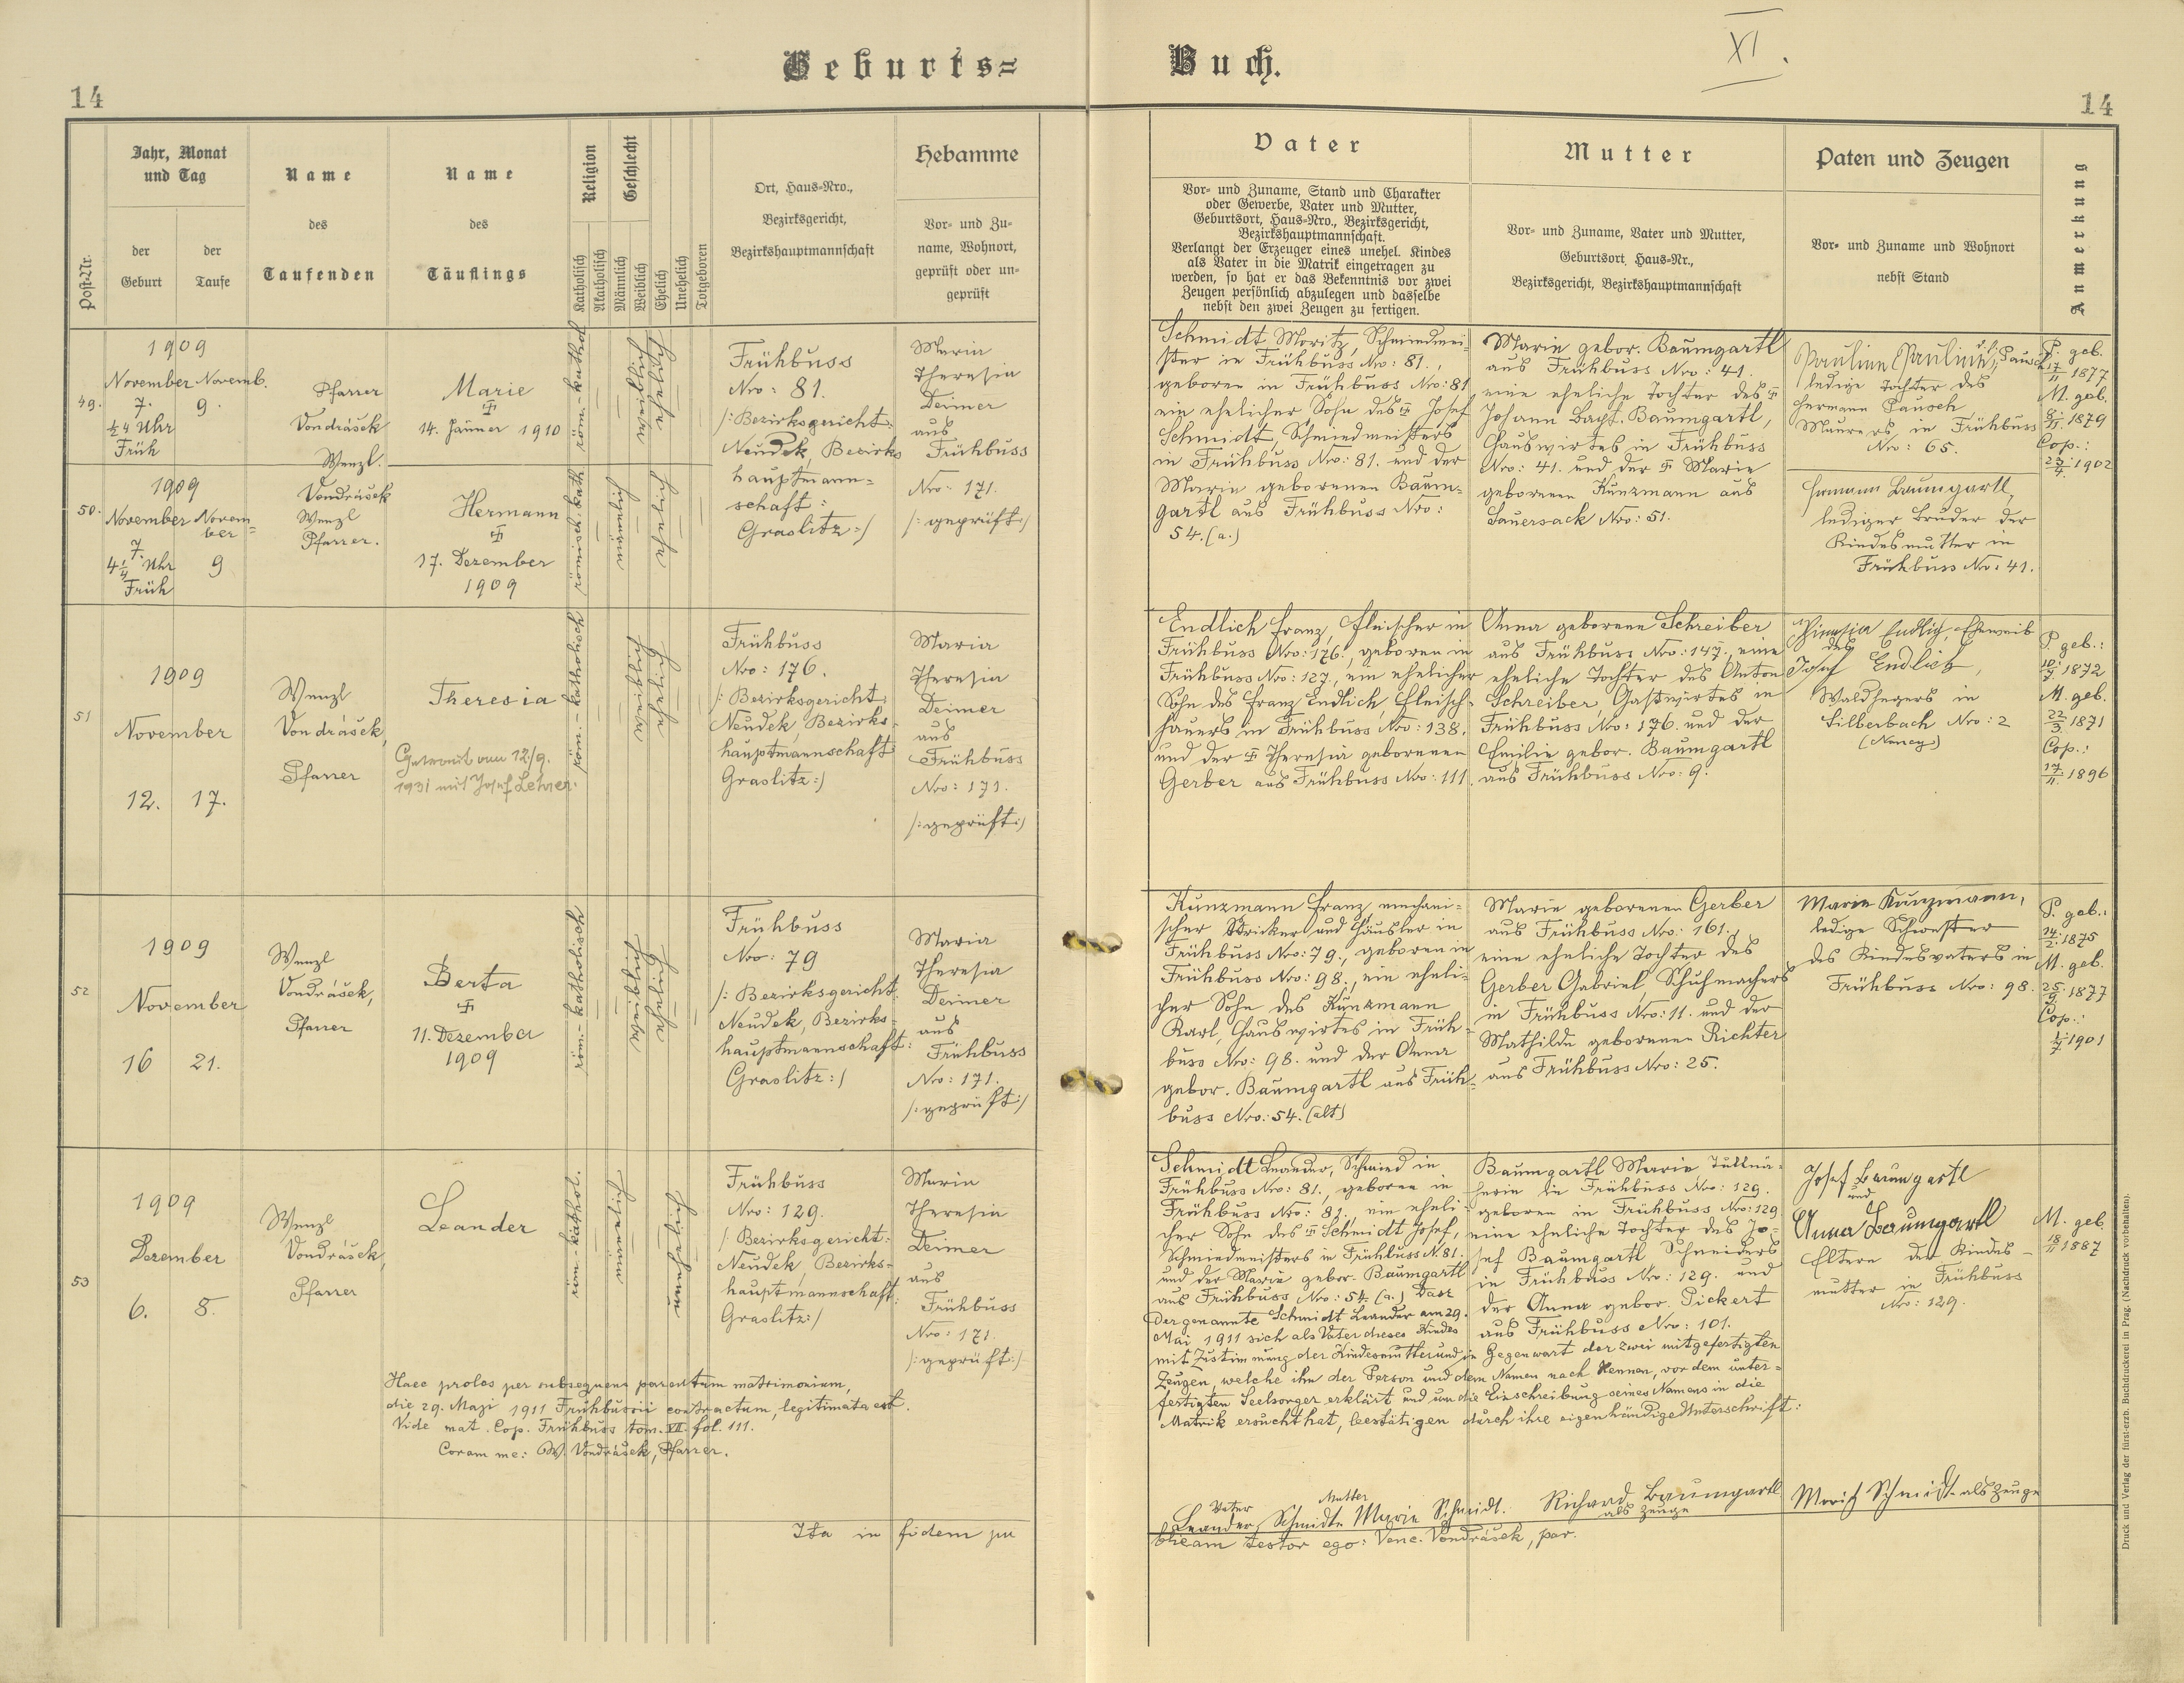 Geburts=
Buch.
XI.
14
14
Jahr, Monat
und Tag
der
Geburt
der
Taufe
Post-Nr.
Name
des
Taufenden
Name
des
Täuflings
Religion
Geschlecht
Katholisch
Akatholisch
Männlich
Weiblich
Ehelich
Unehelich
Totgeboren
Ort, Haus=Nro.,
Bezirksgericht,
Bezirkshauptmannschaft
Hebamme
Vor= und Zu=
name, Wohnort,
geprüft oder un=
geprüft
Vater
Vor= und Zuname, Stand und Charakter
oder Gewerbe, Vater und Mutter,
Geburtsort, Haus=Nro., Bezirksgericht,
Bezirkshauptmannschaft.
Verlangt der Erzeuger eines unehel. Kindes
als Vater in die Matrik eingetragen zu
werden, so hat er das Bekenntnis vor zwei
Zeugen persönlich abzulegen und dasselbe
nebst den zwei Zeugen zu fertigen.
Mutter
Vor= und Zuname, Vater und Mutter,
Geburtsort, Haus=Nr.,
Bezirksgericht, Bezirkshauptmannschaft
Paten und Zeugen
Vor= und Zuname und Wohnort
nebst Stand
Anmerkung
49.
1909
November Novemb.
7. 9.
1/2 4 Uhr
Früh
Pfarrer
Vondrášek
Wenzl.
Marie
14. Jänner 1910
röm.-kathol
Frühbuss
Nro: 81.
/: Bezirksgericht:
Neudek, Bezirks
hauptmann=
schaft:
Graslitz :/
Maria
Theresia
Deimer
aus
Frühbuss
Nro: 171.
/: geprüft :/
Schmidt Moritz, Schmiedmei-
ster in Frühbuss Nro: 81.,
geboren in Frühbuss Nro: 81
ein ehelicher Sohn des Josef
Schmidt, Schmiedmeisters
in Frühbuss Nro: 81. und der
Marie geborenen Baum-
gartl aus Frühbuss Nro:
54. (a.)
Marie gebor. Baumgartl
aus Frühbuss Nro: 41.
eine eheliche Tochter des
Johann Bapt. Baumgartl,
Hauswirtes in Frühbuss
Nro: 41. und der Marie
geborenen Kunzmann aus
Sauersack Nro: 51.
ledige Tochter des
Hermann Pausch
Maurers in Frühbuss
Nro: 65.
P. geb.
17/11 1877
M. geb.
8/11 1879
Cop.:
23/4 1902
50.
1909
November Novem-
ber
7.
4 1/4 Uhr 9
Früh
Vondrášek
Wenzl
Pfarrer.
Hermann
17. Dezember
1909
römisch kath.
Hermann Baumgartl,
lediger Bruder der
Kindesmutter in
Frühbuss Nro: 41.
51
1909
November
12. 17.
Wenzl
Vondrášek,
Pfarrer
Theresia
Getraut am 12/9.
1931 mit Josef Lehrer.
röm.-katholisch
Frühbuss
Nro: 176.
/: Bezirksgericht:
Neudek, Bezirks-
hauptmannschaft
Graslitz :/
Maria
Theresia
Deimer
aus
Frühbuss
Nro: 171.
/: geprüft :/
Endlich Franz, Fleischer in
Frühbuss Nro: 176., geboren in
Frühbuss Nro: 127., ein ehelicher
Sohn des Franz Endlich, Fleisch-
hauers in Frühbuss Nro: 138.
und der Theresia geborenen
Gerber aus Frühbuss Nro: 111.
Anna geborene Schreiber
aus Frühbuss Nro: 147., eine
eheliche Tochter des Anton
Schreiber, Gastwirtes in
Frühbuss Nro: 176. und der
Emilie gebor. Baumgartl
aus Frühbuss Nro: 9.
Endlich, Eheweib
des
Josef Endlich,
Waldhegers in
Silberbach Nro: 2
P. geb.:
10/7 1872
M. geb.
22/3 1871
Cop.:
17/11 1896
52
1909
November
16 21.
Wenzl
Vondrášek,
Pfarrer
Berta
11. Dezember
1909
röm.-katholisch
Frühbuss
Nro: 79
/: Bezirksgericht
Neudek, Bezirks-
hauptmannschaft:
Graslitz :/
Maria
Theresia
Deimer
aus
Frühbuss
Nro: 171.
/: geprüft :/
Kunzmann Franz, mechani-
scher Stricker und Häusler in
Frühbuss Nro: 79., geboren in
Frühbuss Nro: 98., ein eheli-
cher Sohn des Kunzmann
Karl, Hauswirtes in Früh-
buss Nro: 98. und der Anna
gebor. Baumgartl aus Früh-
buss Nro: 54. (alt)
Marie geborenen Gerber
aus Frühbuss Nro: 161.,
eine eheliche Tochter des
Gerber Gabriel, Schuhmachers
in Frühbuss Nro: 11. und der
Mathilde geborenen Richter
aus Frühbuss Nro: 25.
Marie Kunzmann,
ledige Schwester
des Kindesvaters in
Frühbuss Nro: 98.
P. geb.:
14/2 1875
M. geb.
25/9 1877
Cop.:
1/7 1901
53
1909
Dezember
6. 8.
Wenzl
Vondrášek,
Pfarrer
Leander
röm.-kathol.
Frühbuss
Nro: 129.
/: Bezirksgericht:
Neudek, Bezirks-
hauptmannschaft:
Graslitz :/
Maria
Theresia
Deimer
aus
Frühbuss
Nro: 171.
/: geprüft :/
Haec proles per subsequens parentum matrimonium,
die 29. Maji 1911 Frühbussii contractum, legitimata est.
Vide mat. Cop. Frühbuss tom. VII. fol. 111.
Coram me: W. Vondrášek, Pfarrer.
Schmidt Leander, Schmied in
Frühbuss Nro: 81., geboren in
Frühbuss Nro: 81. ein eheli-
cher Sohn des Schmidt Josef,
Schmiedmeisters in Frühbuss N. 81.
und der Marie gebor. Baumgartl
aus Frühbuss Nro: 54. (a.) Dass
der genannte Schmidt Leander am 29.
Mai 1911 sich als Vater dieses Kindes
Baumgartl Marie Tüllnä-
herin in Frühbuss Nro: 129.
geboren in Frühbuss Nro: 129
eine eheliche Tochter des Jo-
sef Baumgartl Schneiders
in Frühbuss Nro: 129. und
der Anna gebor. Pickert
aus Frühbuss Nro: 101.
mit Zustimmung der Kindesmutter und in Gegenwart der zwei mitgefertigten
Zeugen, welche ihn der Person und dem Namen nach kennen, vor dem unter-
fertigten Seelsorger erklärt und um die Einschreibung seines Namens in die
Matrik ersucht hat, bestätigen durch ihre eigenhändige Unterschrift:
Josef Baumgartl
und
Anna Baumgartl
Eltern der Kindes-
mutter in Frühbuss
Nro: 129.
M. geb.
18/11 1887
Vater Mutter
Leander Schmidt Marie Schmidt. Richard Baumgartl Moritz Schmidt als Zeuge
als Zeuge
Ita in fidem pu
blicam testor ego: Venc. Vondrášek, par.
Druck und Verlag der fürst-erzb. Buchdruckerei in Prag. (Nachdruck vorbehalten).